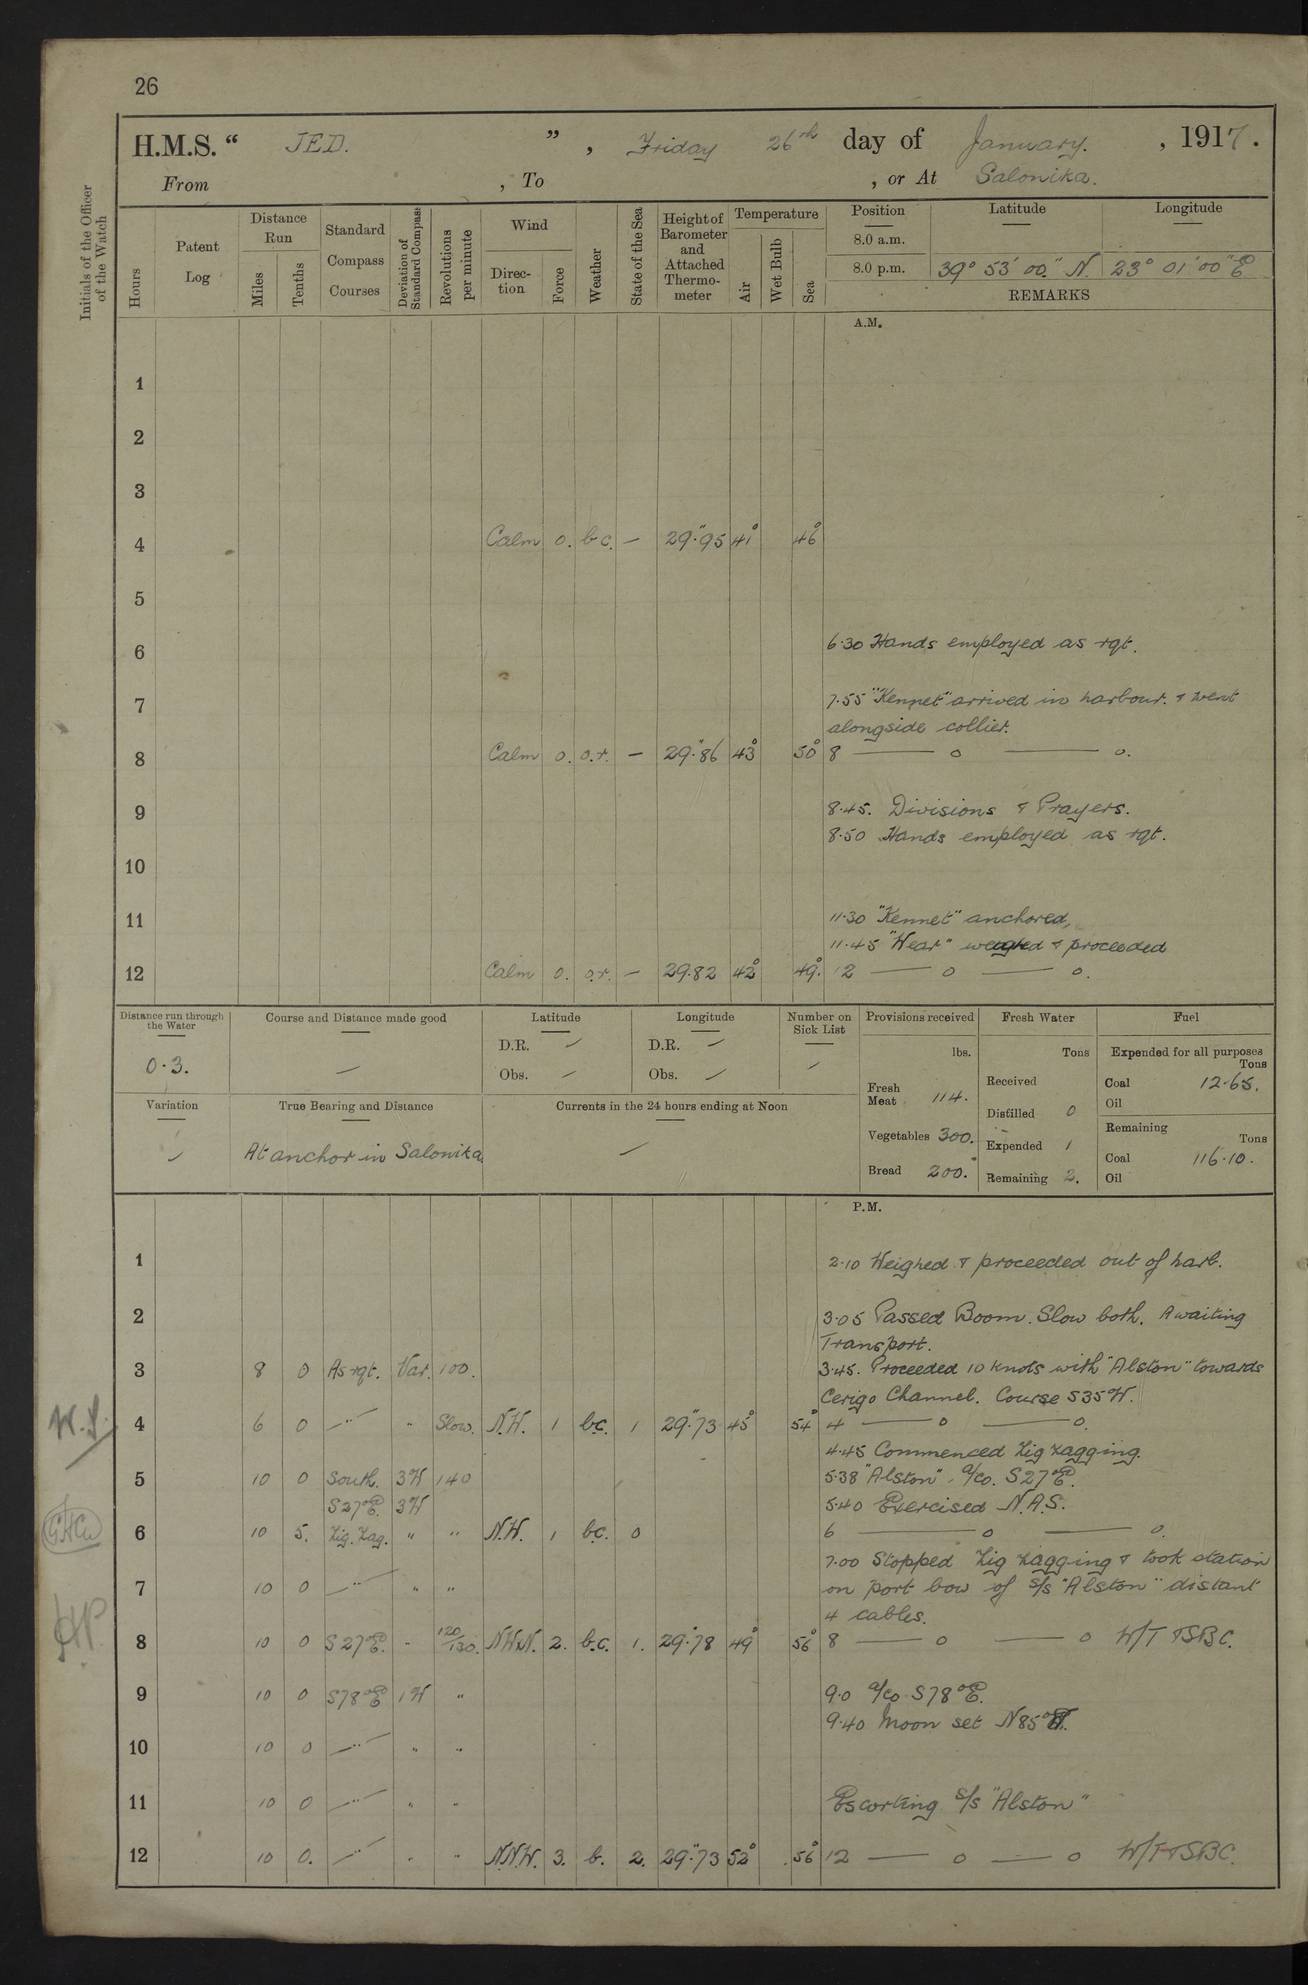 26
H.M.S. “ JED. ” , Friday 26th day of January. , 1917.
From , To , or At Salonika.
Initials of the Officer of the Watch
Hours
Patent Log
Distance Run
Miles
Tenths
Standard Compass Courses
Deviation of Standard Compass
Revolutions per minute
Wind
Direc-tion
Force
Weather
State of the Sea
Height of Barometer and Attached Thermo-meter
Temperature
Air
Wet Bulb
Sea
Position Latitude Longitude
8.0 a.m. — —
8.0 p.m. 39° 53' 00" N. 23° 01' 00" E
REMARKS
A.M.
1
2
3
4 Calm 0. bc. — 29".95 41° 46°
5
6 6.30 Hands employed as rqt.
7 7.55 "Kennet" arrived in harbour. & went
alongside collier.
8 Calm 0. o.r. — 29".86 43° 50° 8 — o — o.
9 8.45. Divisions & Prayers.
8.50 Hands employed as rqt.
10
11 11.30 "Kennet" anchored,
11.45 "Wear" weighed & proceeded
12 Calm 0. o.r. — 29.82 42° 49°. 12 — o — o.
Distance run through the Water
0.3.
Course and Distance made good
—
Latitude
D.R. —
Obs. —
Longitude
D.R. —
Obs. —
Number on Sick List
—
Provisions received
lbs.
Fresh Meat 114.
Vegetables 300.
Bread 200.
Fresh Water
Tons
Received
Distilled 0
Expended 1
Remaining 2.
Fuel
Expended for all purposes
Tons
Coal 12.65.
Oil
Remaining
Tons
Coal 116.10.
Oil
Variation
—
True Bearing and Distance
At anchor in Salonika.
Currents in the 24 hours ending at Noon
—
P.M.
1 2.10 Weighed & proceeded out of harb.
2 3.05 Passed Boom. Slow both. Awaiting
Transport.
3 8 0 As rqt. Var. 100. 3.45. Proceeded 10 knots with "Alston" towards
Cerigo Channel. Course S35W.
4 6 0 — " — " Slow. N.W. 1 bc. 1 29".73 45° 54° 4 — o — o.
4.45 Commenced Zig Zagging.
5 10 0 South. 3W 140 5.38 "Alston". a/co. S27°E.
S27°E. 3W 5.40 Exercised N.A.S.
6 10 5. Zig. Zag. " " N.W. 1 bc. 0 6 — o — o.
7.00 Stopped Zig Zagging & took station
7 10 0 — " — " " on port bow of s/s "Alston" distant
4 cables.
8 10 0 S27°E. " 120/130. NWN. 2. b.c. 1. 29".78 49° 56° 8 — o — o W/T & SBC.
9 10 0 S78°E 1W " 9.0 a/co S78°E.
9.40 Moon set N85°W.
10 10 0 — " — " "
11 10 0 — " — " " Escorting s/s "Alston"
12 10 0. — " — " " N.N.W. 3. b. 2. 29".73 52° 56° 12 — o — o W/T & SBC.